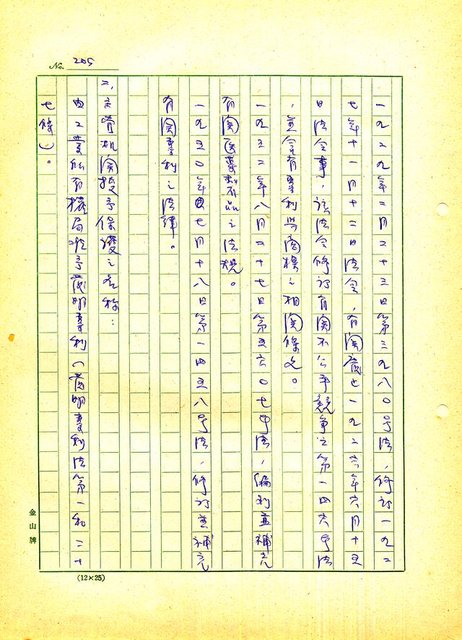 No. 205
一九二九年二月二十三日第三九八〇号法，修訂一九二
七年十一月十二日法令，有関廢止一九二六年六月十五
日法令事，該法令修訂有関不公平競争之第一四六号法
，並含有專利與商標之相関條文。
一九三二年八月二十七日第五六〇七号法，編列並補充
有関医藥製品之法規。
一九五〇年七月十八日第一四五八号法，修訂並補充
有関專利之法律。
二、主管机関授予保護之名称：
由工業所有權局准予發明專利（發明專利法第一和二十
七條）。
金山牌
(12×25)